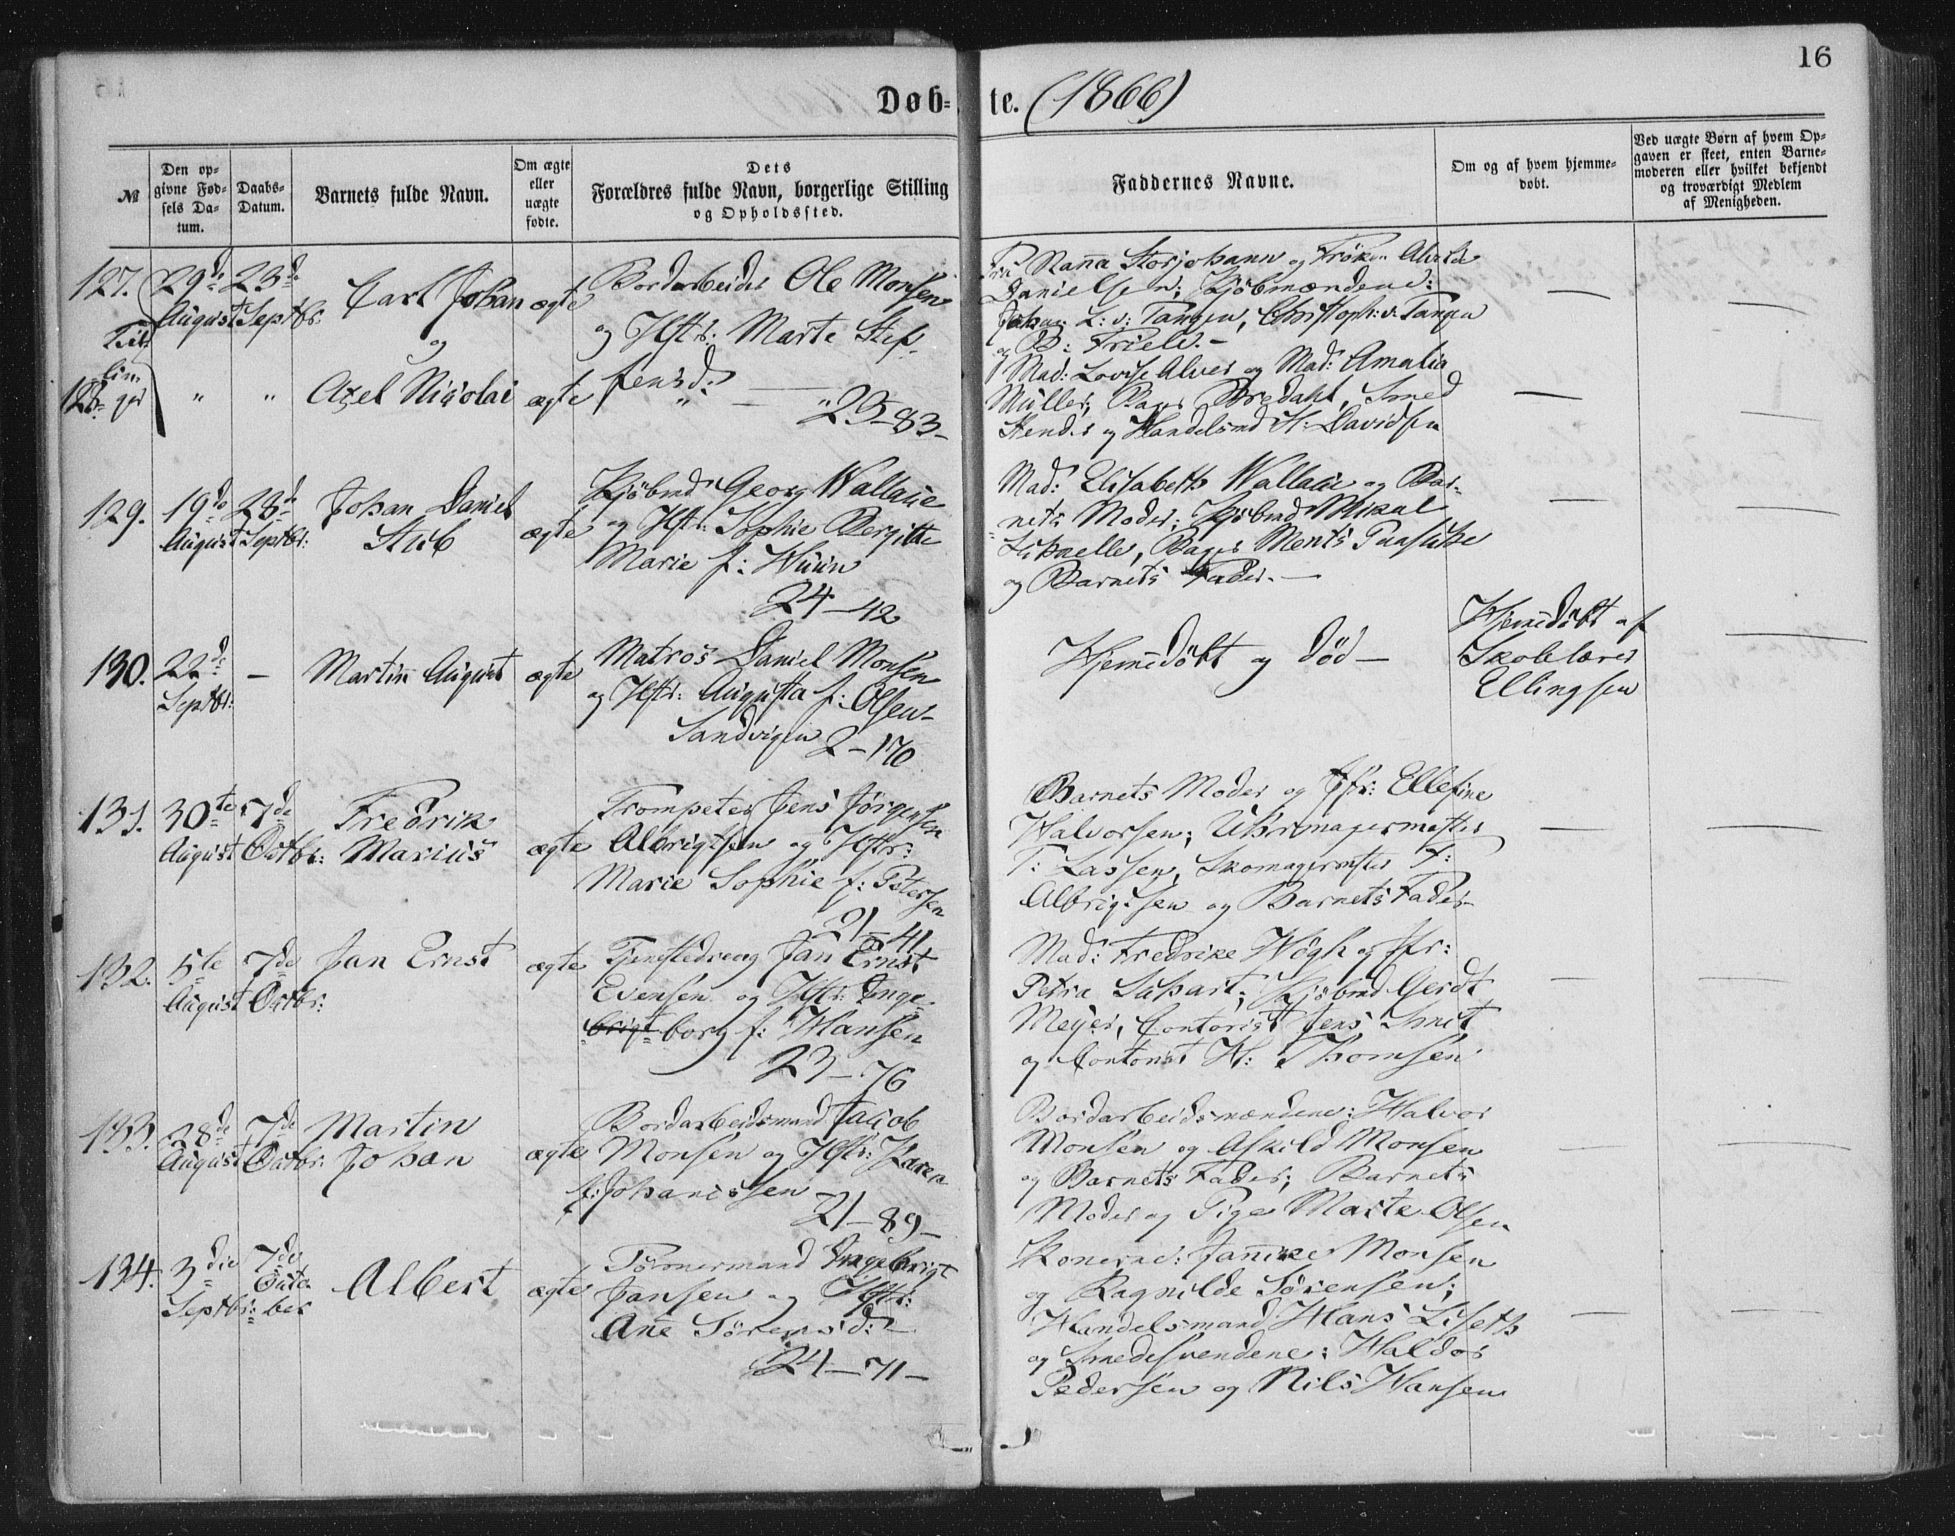 16
Døb-
te. (1866)
№
Den op-
givne Fød-
sels Da-
tum.
Daabs-
Datum.
Barnets fulde Navn.
Om ægte
eller
uægte
fødte.
Dets
Forældres fulde Navn, borgerlige Stilling
og Opholdssted.
Faddernes Navne.
Om og af hvem hjemme-
døbt.
Ved uægte Børn af hvem Op-
gaven er skeet, enten Barne-
moderen eller hvilket bekjendt
og troværdigt Medlem
af Menigheden.
127.
29de
August
23de
Septbr:
Carl Johan
og
ægte
Bordarbeider Ole Monsen
og Hstr: Marte Stef-
fensd:
Nanna Storjohann og Frøken
Danielsen; Kjøbmændene:
Johan L: v: Tangen, Christoph: v: Tangen
og B: Friele. —
—
Tvil-
lin-
ger
128.
"
"
Axel Nicolai
ægte
" — "
23-83-
Mad: Lovise Alver og Mad: Amalia
Müller, Bager Bredahl, Smed
og Handelsmd H: Davidsen
—
129.
19de
August
23de
Septbr:
Johan Daniel
Stub
ægte
Kjøbmd Georg Wallace
og Hstr: Sophie Bergitte
Marie f: Wiin
24-42
Mad: Elisabeth Wallace og Bar-
nets Moder; Kjøbmd Mikal
Bager Ments
og Barnets Fader. —
—
—
130.
22de
Septbr:
—
Martin August
ægte
Matros Daniel Monsen
og Hstr: Augusta f: Olsen-
Sandvigen 2-170
Hjemdöbt og död —
Hjemdöbt af
Skolelærer
Ellingsen
—
131.
30te
August
7de
Octbr:
Fredrik
Marius
ægte
Trompeter Jens Jörgensen
Albrigtsen og Hstr:
Marie Sophie f: Petersen
21-41
Barnets Moder og Jfr: Ellefine
Halvorsen; Uhrmagermester
T: Lassen, Skomagermester F:
Albrigtsen og Barnets Fader-
—
—
132.
5te
August
7de
Octbr:
Jan Ernst
ægte
Tjenestedreng Jan Ernst
Evensen og Hstr: Inge-
brigt- borg f: Hansen
23-76
Mad: Fredrike Högh og Jfr:
Petra Kjöbmd Gerdt
Meyer, Contorist Jens Smit
og Contorist H: Thomsen
—
—
133.
28de
August
7de
Octbr:
Martin
Johan
ægte
Bordarbeidsmand Jacob
Monsen og Hstr: Karen
f: Johannessen
21-89-
Bordarbeidsmændene: Halvor
Monsen og Askild Monsen
og Barnets Fader; Barnets
Moder og Pige Marte Olsen
—
—
134.
3die
Septbr:
7de
Octo-
ber
Albert
ægte
Tömmermand Ingebrigt
Jansen og Hstr:
Ane Sörensd:
24-71-
Konerne: Jannike Monsen
og Ragnilde Sörensen;
Handelsmand Hans Liseth
og Smedesvendene: Haldor
Pedersen og Nils Hansen
—
—